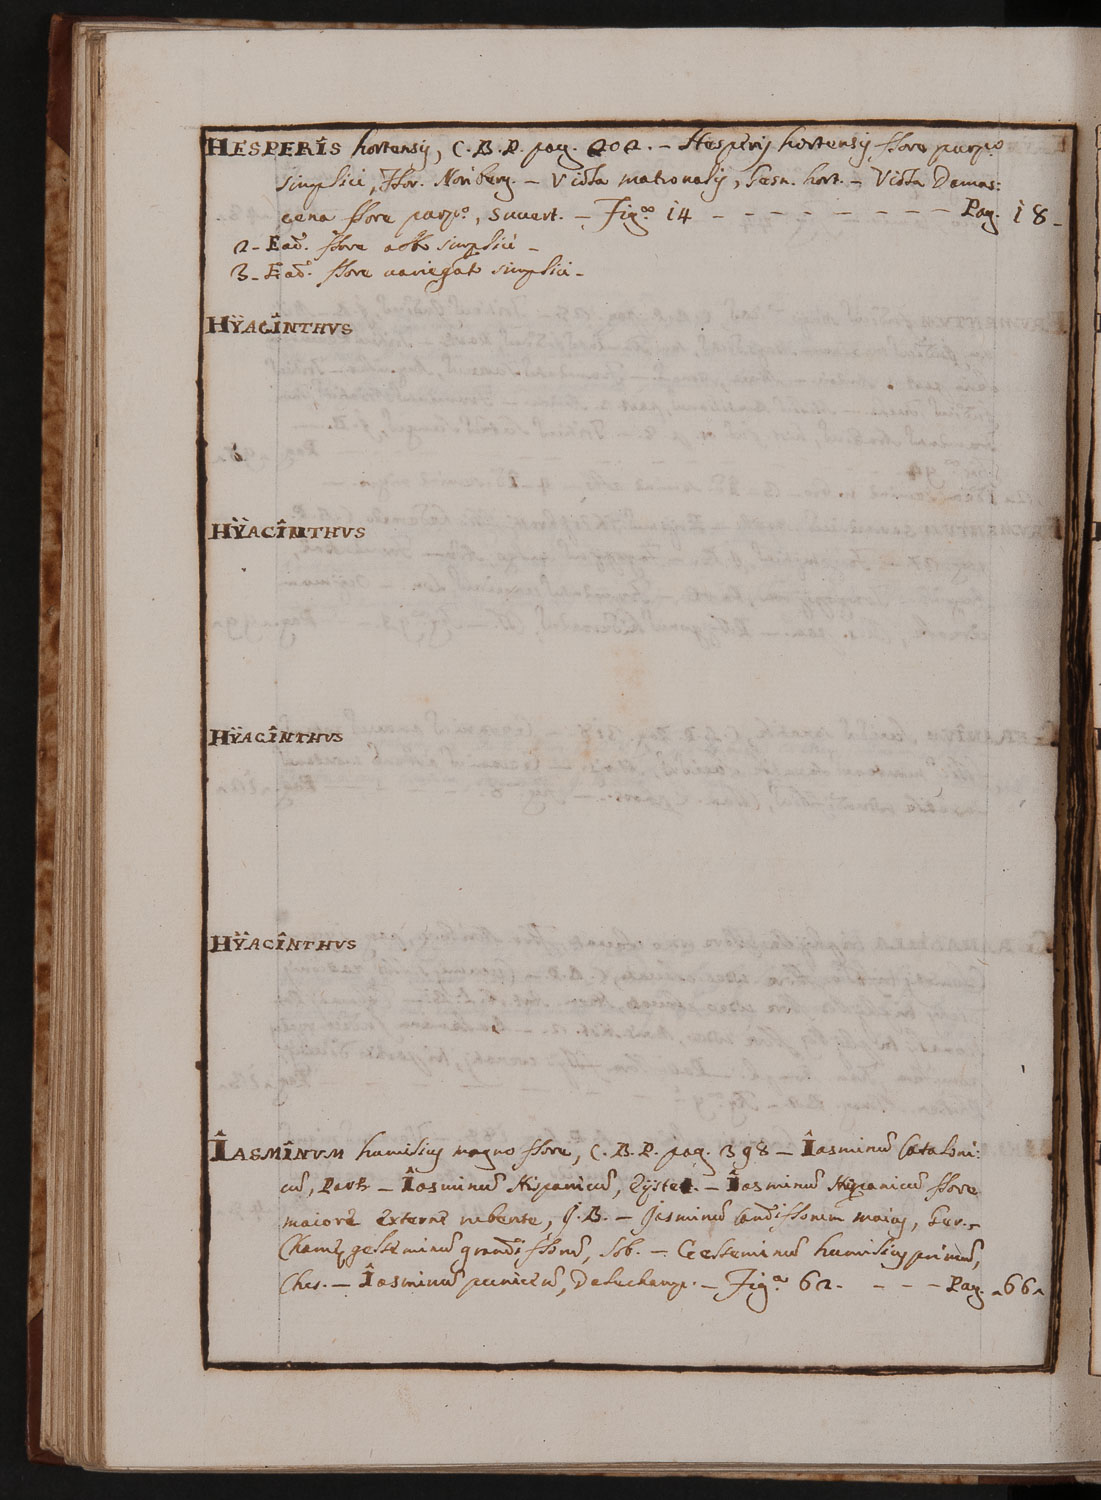 HESPERIS hortensis, C. B. P. pag. 202. – Hesperis hortensis, flore purp.º
simplici, Hor. Noriberg. – Viola matronalis, Gesn. hort. – Viola Damas:
cena flore purp.º, Suuert. – Fig.ª 14 - - - - - - - - Pag. 18 -
2 - Ead. flore albo simplici -
3 - Ead. flore variegato simplici -
HŸACÎNTHVS
HŸACÎNTHVS
HŸACÎNTHVS
HŸACÎNTHVS
ÎASMÎNVM humilius magno flore, C. B. P. pag. 398 – Îasminũ Cataloni:
cũ, Park – Îasminũ Hispanicũ, Eystet. – Îasminũ Hispanicũ flore
maiore externe rubente, J. B. – Jasminũ candiflorum maius, Ger. –
Chamęgelseminũ grandiflorũ, lob. – Gelseminũ humilius primũ,
Ches. – Îasminũ puniceũ, Delechamp. – Fig.ª 62. - - - Pag. 66